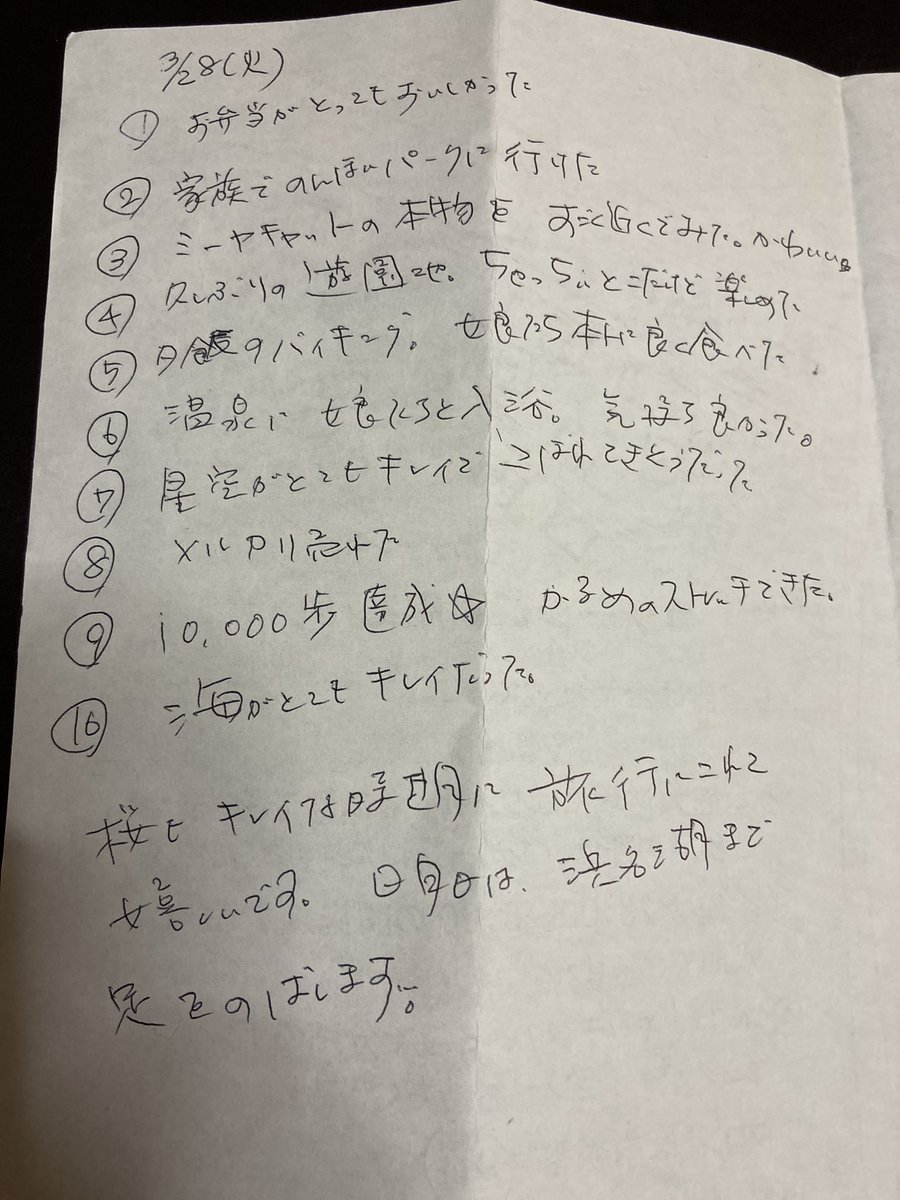 3/28(火)
① お弁当がとってもおいしかった
② 家族でのんほいパークに行けた
③ ミーヤキャットの本物をすごく近くでみた。かわいい。
④ 久しぶりの遊園地。ちっちゃいとこだけど楽しめた
⑤ 夕食のバイキング。娘たち本当に良く食べた
⑥ 温泉に娘たちと入浴。気持ち良かった。
⑦ 星空がとてもキレイでこぼれてきそうだった
⑧ メルカリ売れた
⑨ 10,000歩達成☆ かるめのストレッチできた。
⑩ 海がとてもキレイだった。
桜もキレイな時期に旅行にこれて
嬉しいです。明日は、浜名湖まで
足をのばします。